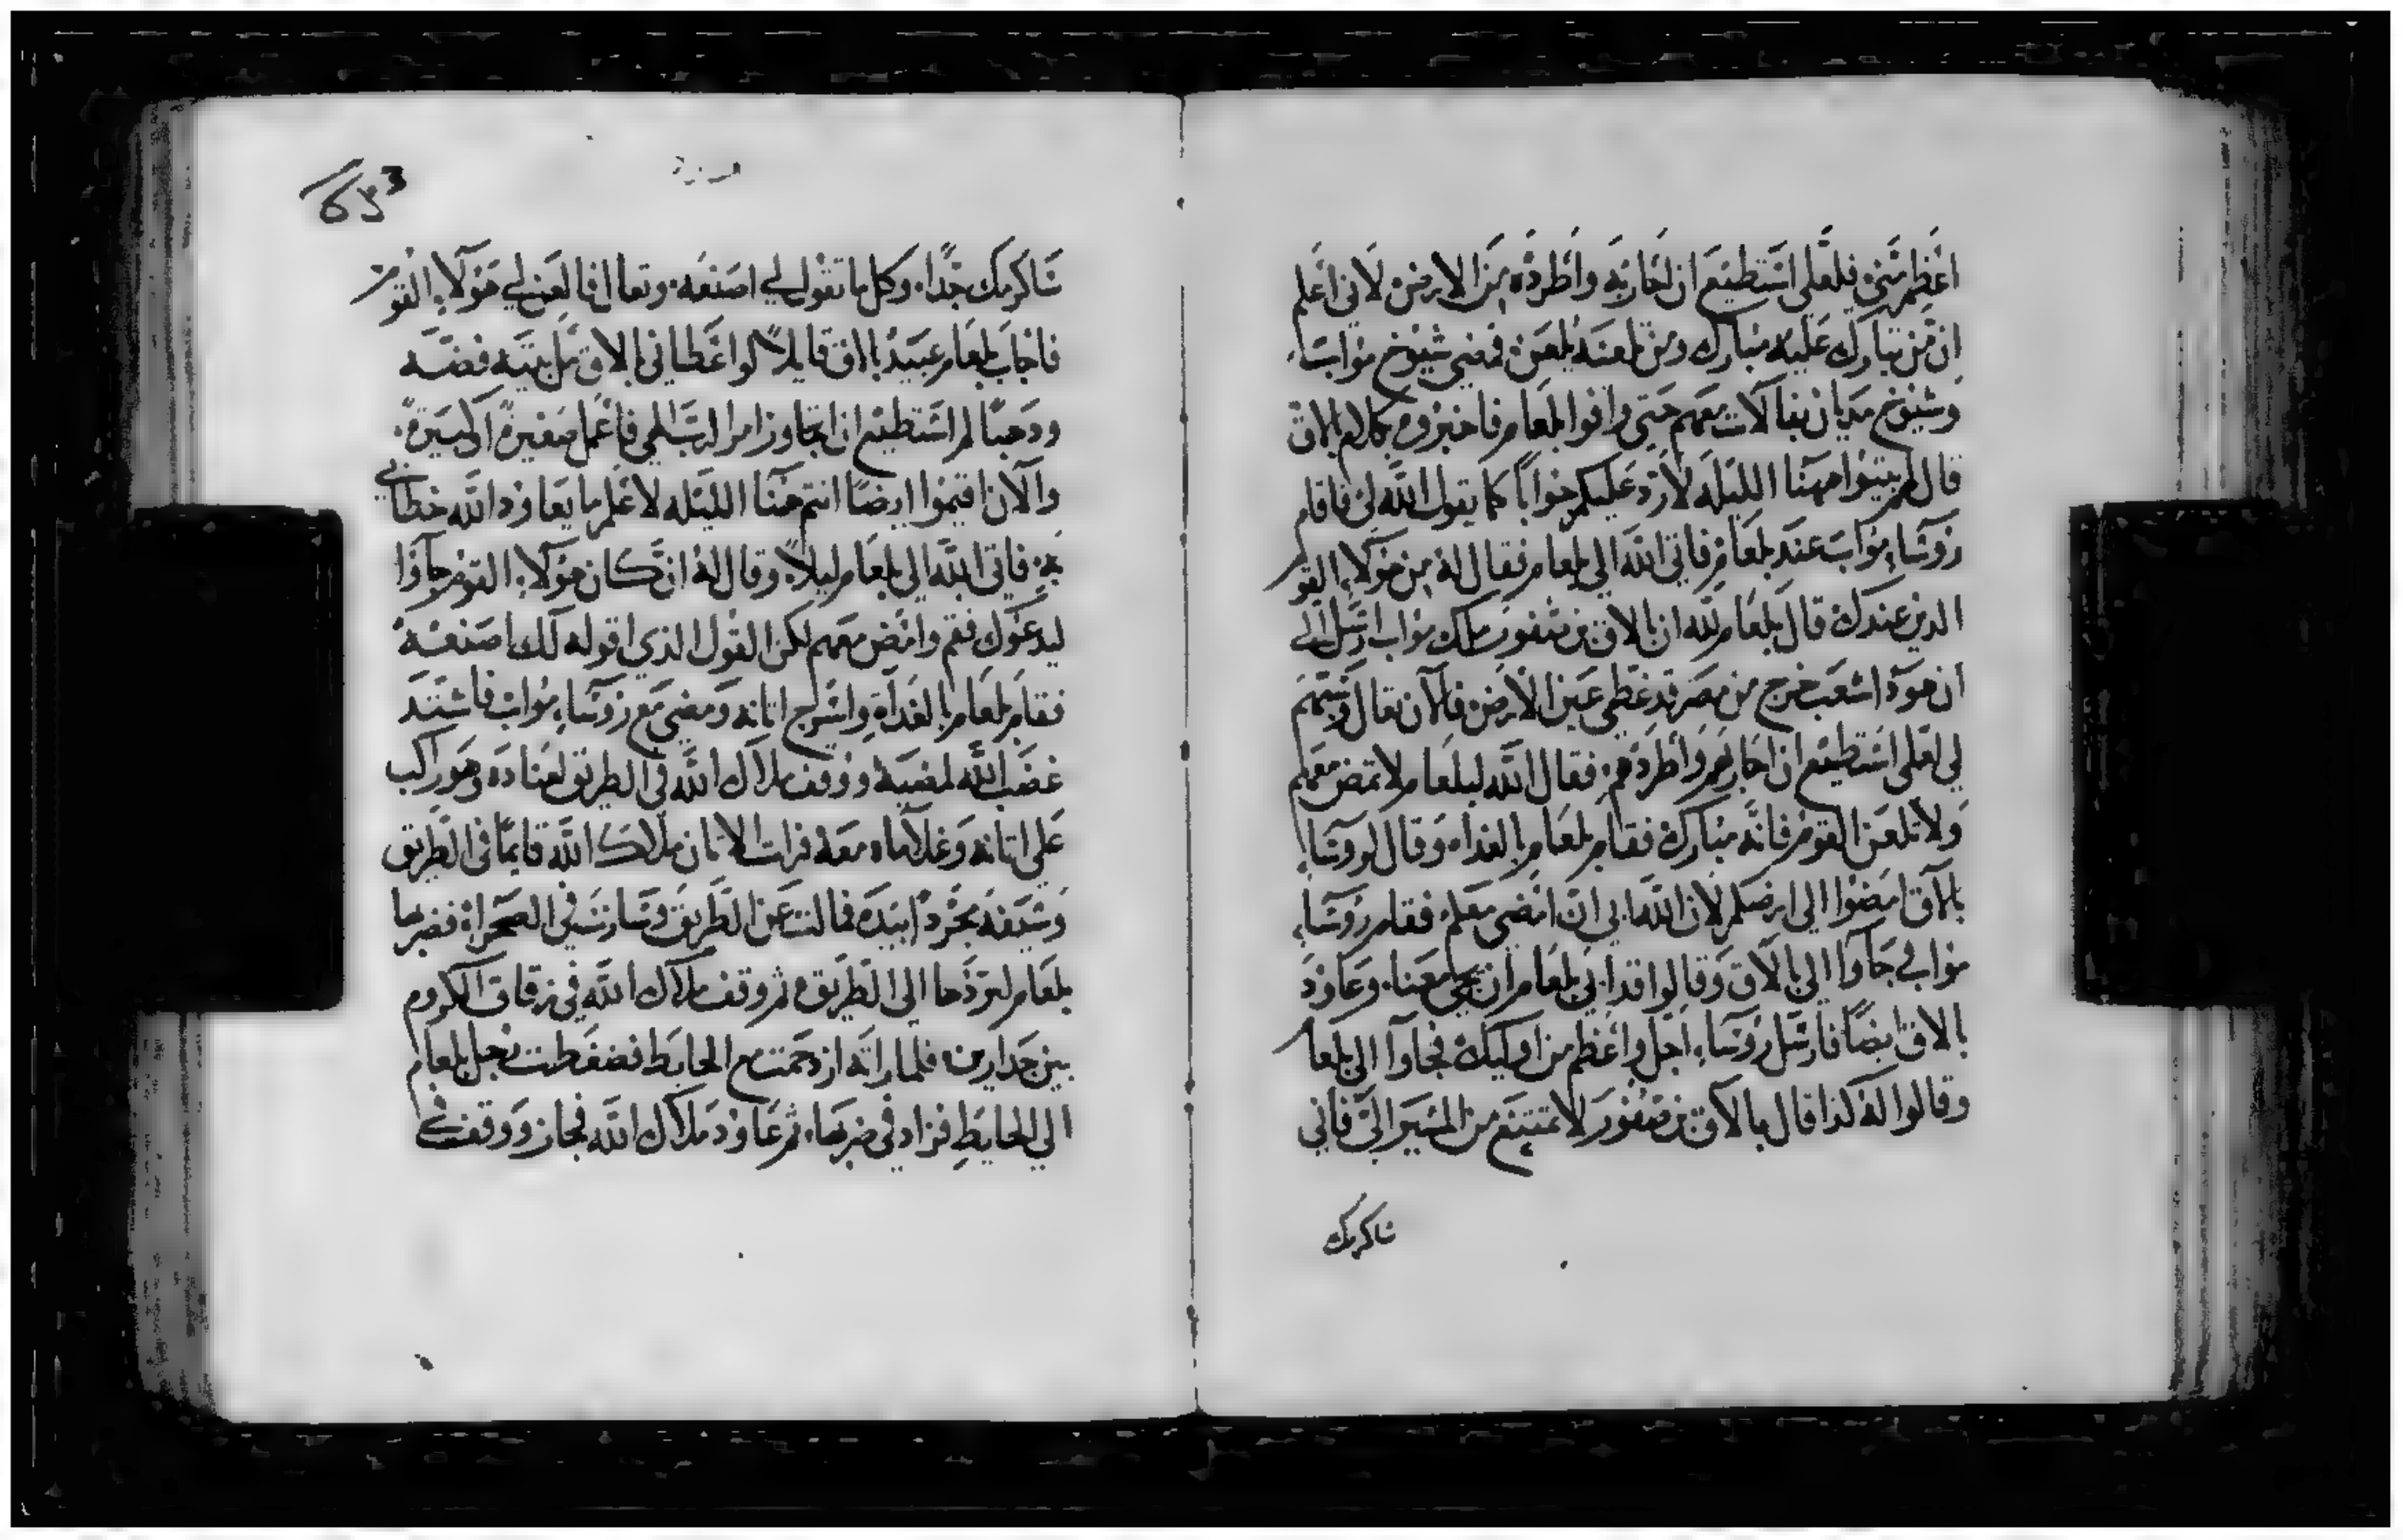 اعظم مني فلعلي استطيع ان احاربه واطرده من الارض لاني اعلم
ان من تبارك عليه مبارك ومن تلعنه يلعن فمضي شيوخ مواب
وشيوخ مديان بفالات معهم حتي وافوا بلعام فاخبروه بكلام بالاق
قال لهم بيتوا ههنا الليله لارد عليكم جوابا كما يقول الله لي فاقام
روسا مواب عند بلعام فاتي الله الي بلعام فقال له من هولاء القوم
الدين عندك قال بلعام لله ان بالاق بن صفور ملك مواب ارسل الي
ان هودا شعب خرج من مصر قد غطي عين الارض فالآن تعال وشتمهم
لي لعلي استطيع ان احاربهم واطردهم فقال الله لبلعام لا تمض معهم
ولا تلعن القوم فانه مبارك فقام بلعام بالغداه وقال لروسا
بالاق امضوا الي ارضكم لان الله ابي ان امضي معكم فقام روسا
مواب جاوا الي بالاق وقالوا قد ابي بلعام ان يجي معنا وعاود
بالاق ايضا فارسل روسا اجل واعظم من اوليك فجاوا الي بلعام
وقالوا له كذا قال بالاق بن صفور لا تمتنع من المسير الي فاني
ساكرمك
653
ساكرمك جدا وكل ما تقول لي اصنعه وتعال فالعن لي هولاء القوم
فاجاب بلعام عبيد بالاق قايلا لو اعطاني بالاق مل بيته فضه
ودهبا لم استطيع ان اتجاوز امر الرب الهي فاعمل صغيرة او كبيرة
والآن اقيموا ايضا انتم هنا الليله لاعلم ما يعاود الله خطابي
به فاتي الله الي بلعام ليلا وقال له ان كان هولاء القوم جاوا
ليدعوك فقم وامض معهم لكن القول الذي اقوله لك اصنعه
فقام بلعام بالغداه واسرج اتانه ومضي مع روسا مواب فاشتد
غضب الله لمضيه ووقف ملاك الله في الطريق لعناده وهو راكب
علي اتانه وغلاماه معه فرات الاتان ملاك الله قايما في الطريق
وسيفه مجرد ابيده فمالت عن الطريق وسارت في الصحراء فضربها
بلعام ليردها الي الطريق ثم وقف ملاك الله في زقاق الكروم
بين جدارين فلما راته ازدحمت مع الحايط فضغطت رجل بلعام
الي الحايط فزاد في ضربها ثم عاود ملاك الله فجاز ووقف في